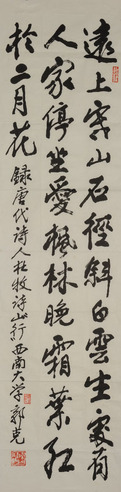 遠上寒山石徑斜白雲生處有
人家停坐愛楓林晚霜葉紅
於二月花
録唐代詩人杜牧詩山行西南大学郭克